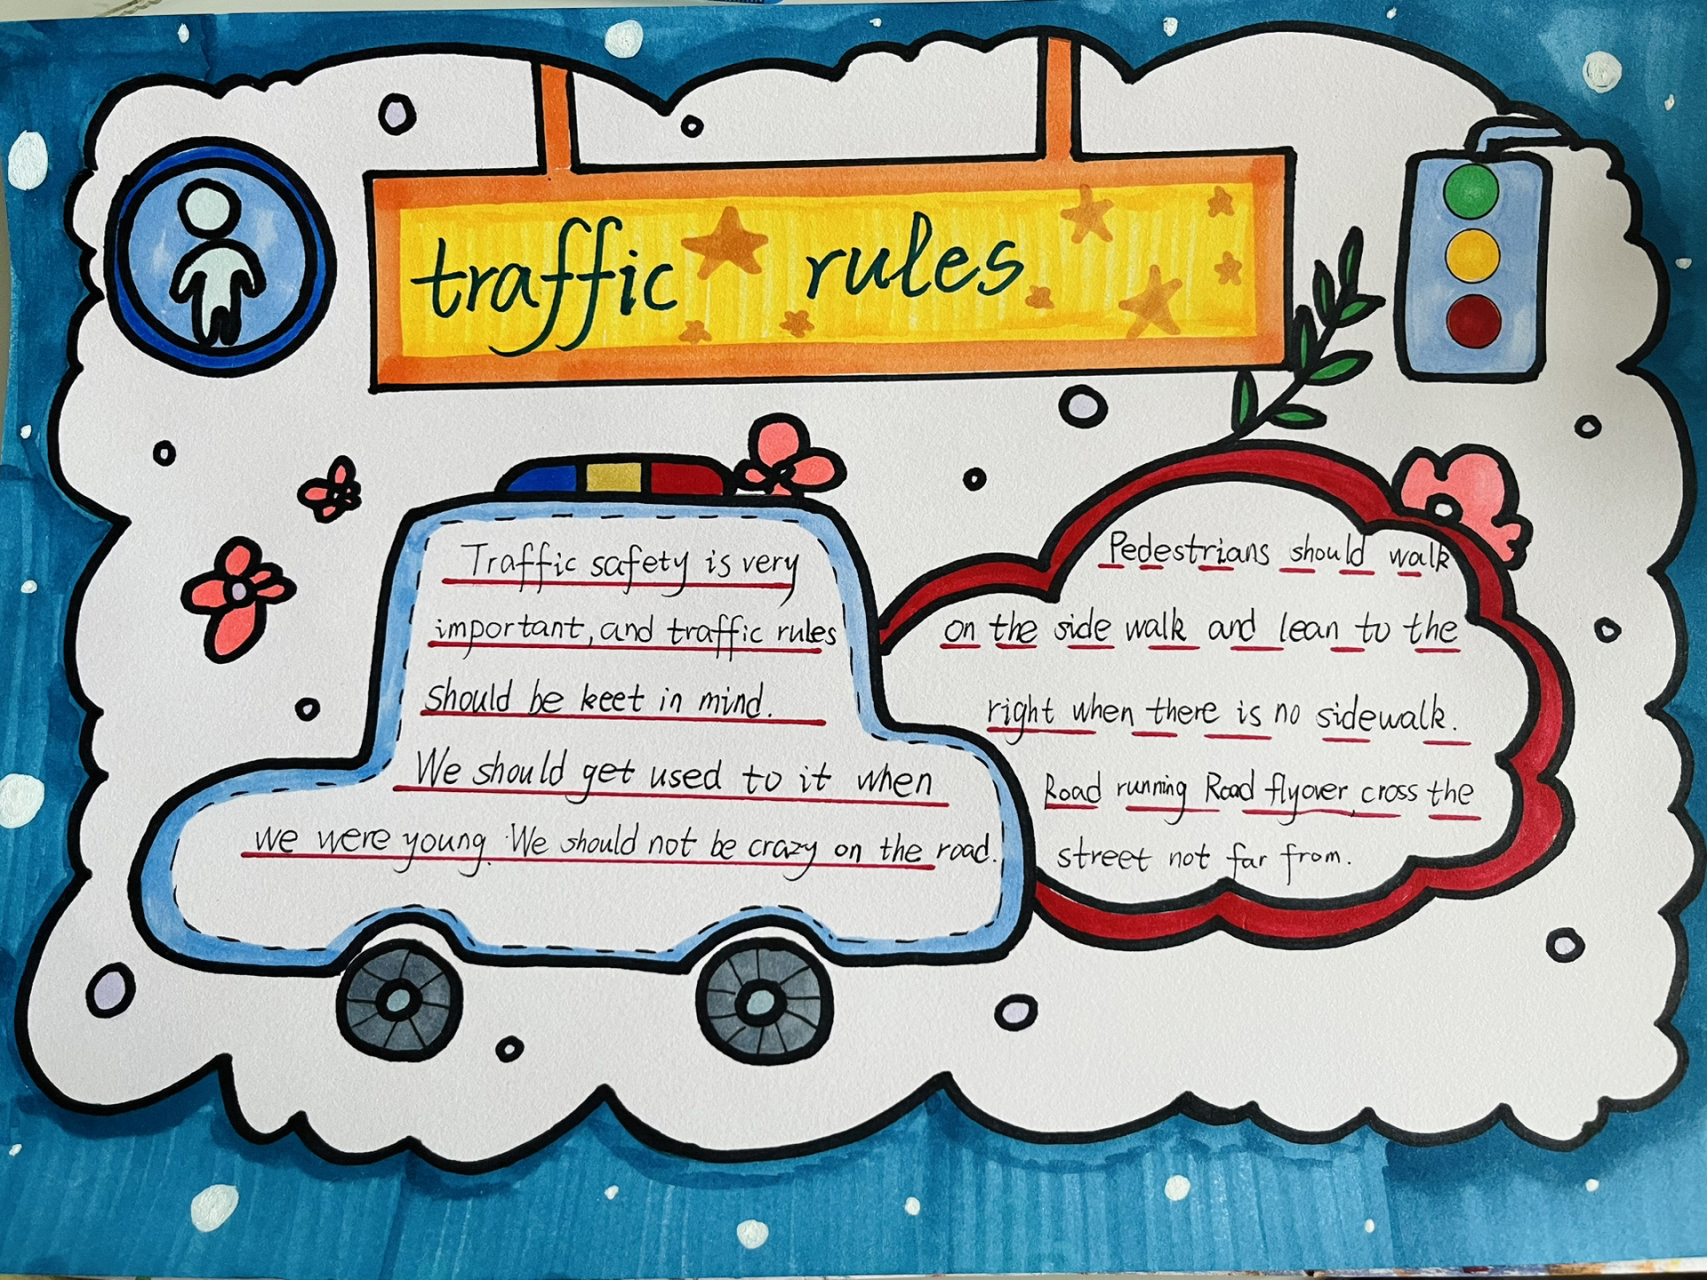 traffic rules
Traffic safety is very
important, and traffic rules
should be keet in mind.
We should get used to it when
we were young. We should not be crazy on the road.
Pedestrians should walk
on the side walk and lean to the
right when there is no sidewalk.
Road running Road flyover, cross the
street not far from.